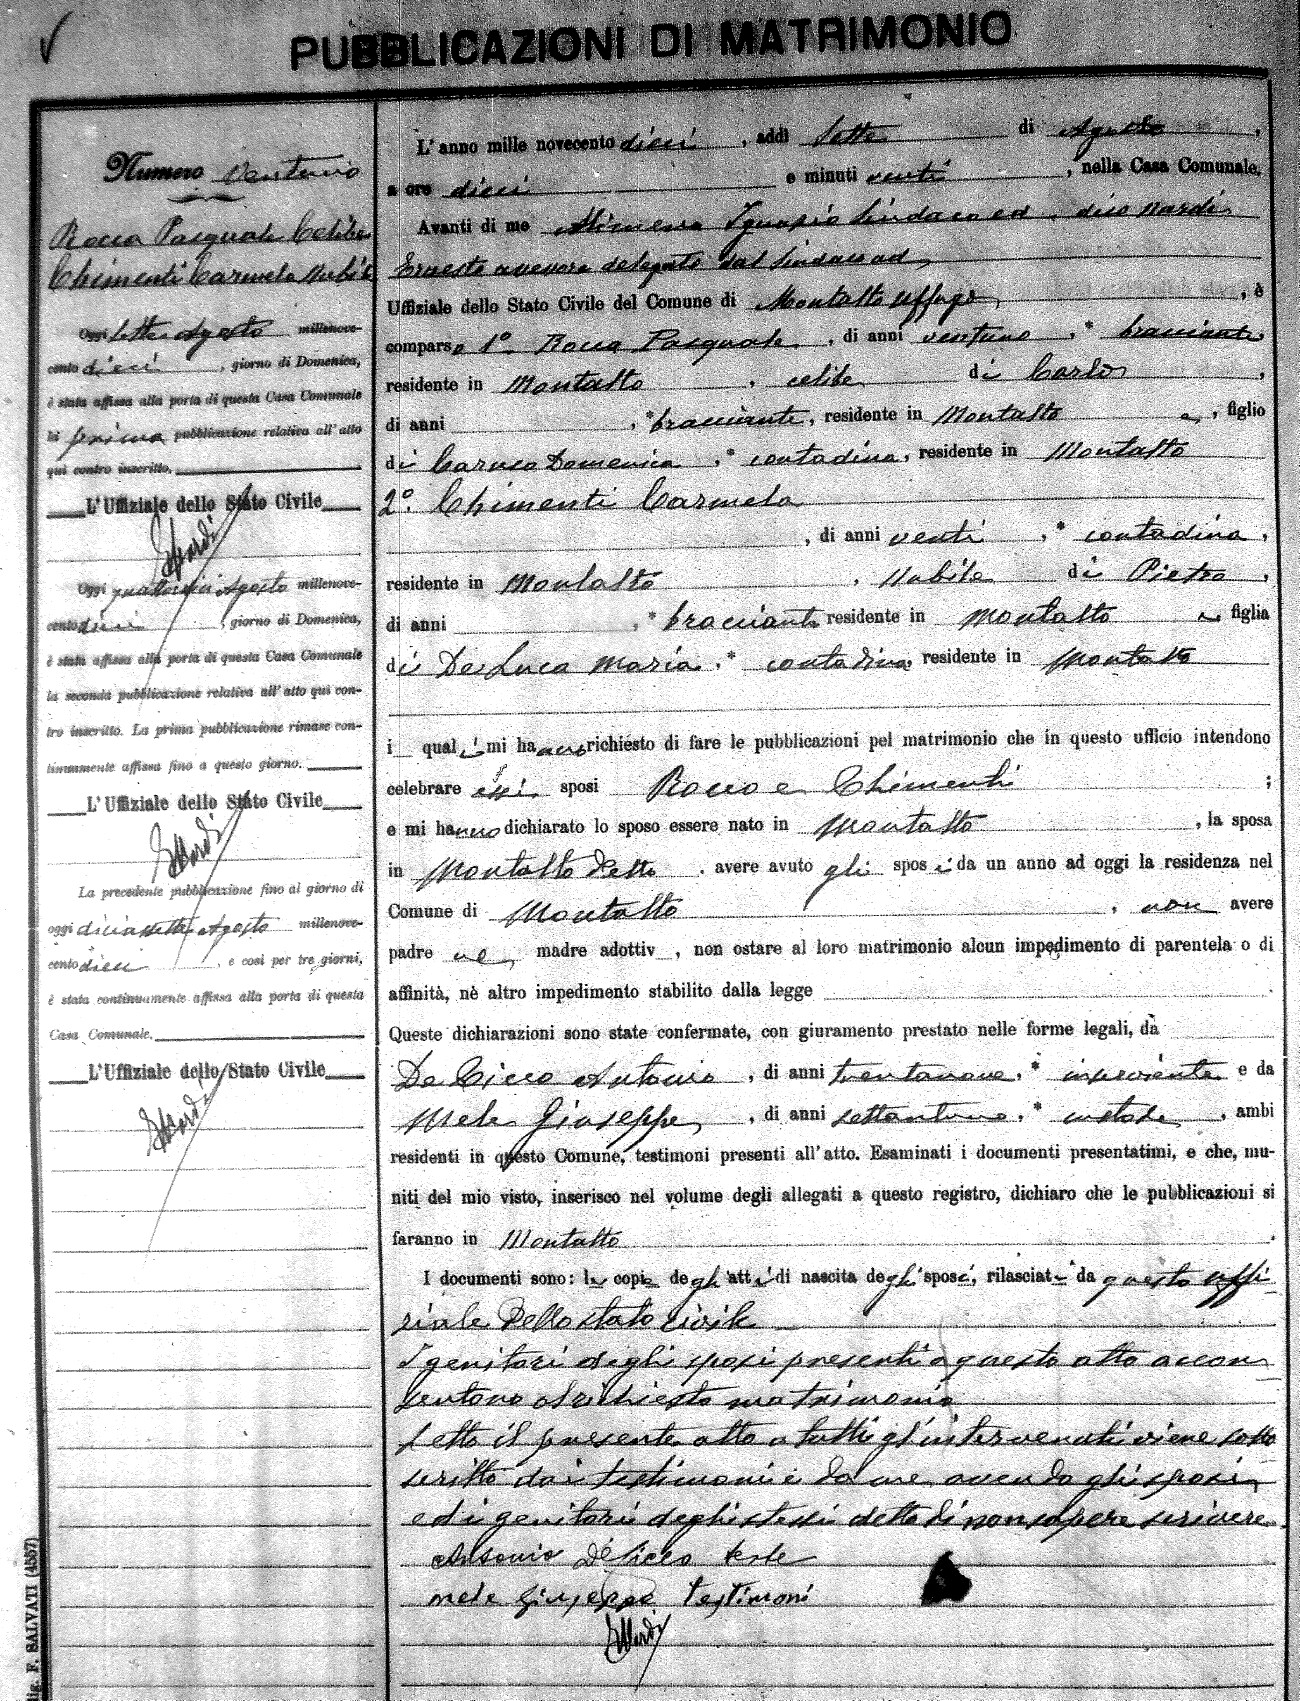 PUBBLICAZIONI DI MATRIMONIO
Numero Ventuno
Rocca Pasquale Celibe
Chimenti Carmela Nubile
Oggi sette Agosto millenove-
cento dieci, giorno di Domenica,
è stata affissa alla porta di questa Casa Comunale
la prima pubblicazione relativa all'atto
qui contro inscritto.
L'Uffiziale dello Stato Civile
ENardi
Oggi quattordici Agosto millenove-
cento dieci, giorno di Domenica,
è stata affissa alla porta di questa Casa Comunale
la seconda pubblicazione relativa all'atto qui con-
tro inscritto. La prima pubblicazione rimase con-
tinuamente affissa fino a questo giorno.
L'Uffiziale dello Stato Civile
ENardi
La precedente pubblicazione fino al giorno di
oggi diciassette Agosto millenove-
cento dieci, e così per tre giorni,
è stata continuamente affissa alla porta di questa
Casa Comunale.
L'Uffiziale dello Stato Civile
ENardi
L'anno mille novecento dieci, addì sette di Agosto,
a ore dieci e minuti venti, nella Casa Comunale.
Avanti di me Ignazio Sindaco ed dico Nardi
Ernesto delegato dal Sindaco ad
Uffiziale dello Stato Civile del Comune di Montalto Uffugo, è
comparso 1º Rocca Pasquale, di anni ventuno, * bracciante,
residente in Montalto, celibe di Carlo,
di anni , * bracciante, residente in Montalto e, figlio
di Caruso Domenica, * contadina, residente in Montalto
2º. Chimenti Carmela
, di anni venti, * contadina,
residente in Montalto, Nubile di Pietro,
di anni , * bracciante residente in Montalto e, figlia
di De Luca Maria, * contadina, residente in Montalto
i quali mi hanno richiesto di fare le pubblicazioni pel matrimonio che in questo ufficio intendono
celebrare essi sposi Rocco e Chimenti ;
e mi hanno dichiarato lo sposo essere nato in Montalto, la sposa
in Montalto detto. avere avuto gli sposi da un anno ad oggi la residenza nel
Comune di Montalto, non avere
padre ne madre adottiv , non ostare al loro matrimonio alcun impedimento di parentela o di
affinità, nè altro impedimento stabilito dalla legge .
Queste dichiarazioni sono state confermate, con giuramento prestato nelle forme legali, da
De Cicco Antonio, di anni trentanove, * inserviente e da
Mele Giuseppe, di anni settantuno, * custode, ambi
residenti in questo Comune, testimoni presenti all'atto. Esaminati i documenti presentatimi, e che, mu-
niti del mio visto, inserisco nel volume degli allegati a questo registro, dichiaro che le pubblicazioni si
faranno in Montalto.
I documenti sono: le copie degli atti di nascita degli sposi, rilasciate da questo uffi
ziale dello stato civile
I genitori degli sposi presenti a questo atto accon
sentono al richiesto matrimonio
Letto il presente atto a tutti gl'intervenuti viene sotto
scritto dai testimoni e da me avendo gli sposi
ed i genitori degli stessi detto di non sapere scrivere.
Antonio De Cicco teste
mele Giuseppe testimoni
ENardi
Tig. F. SALVATI (4557)